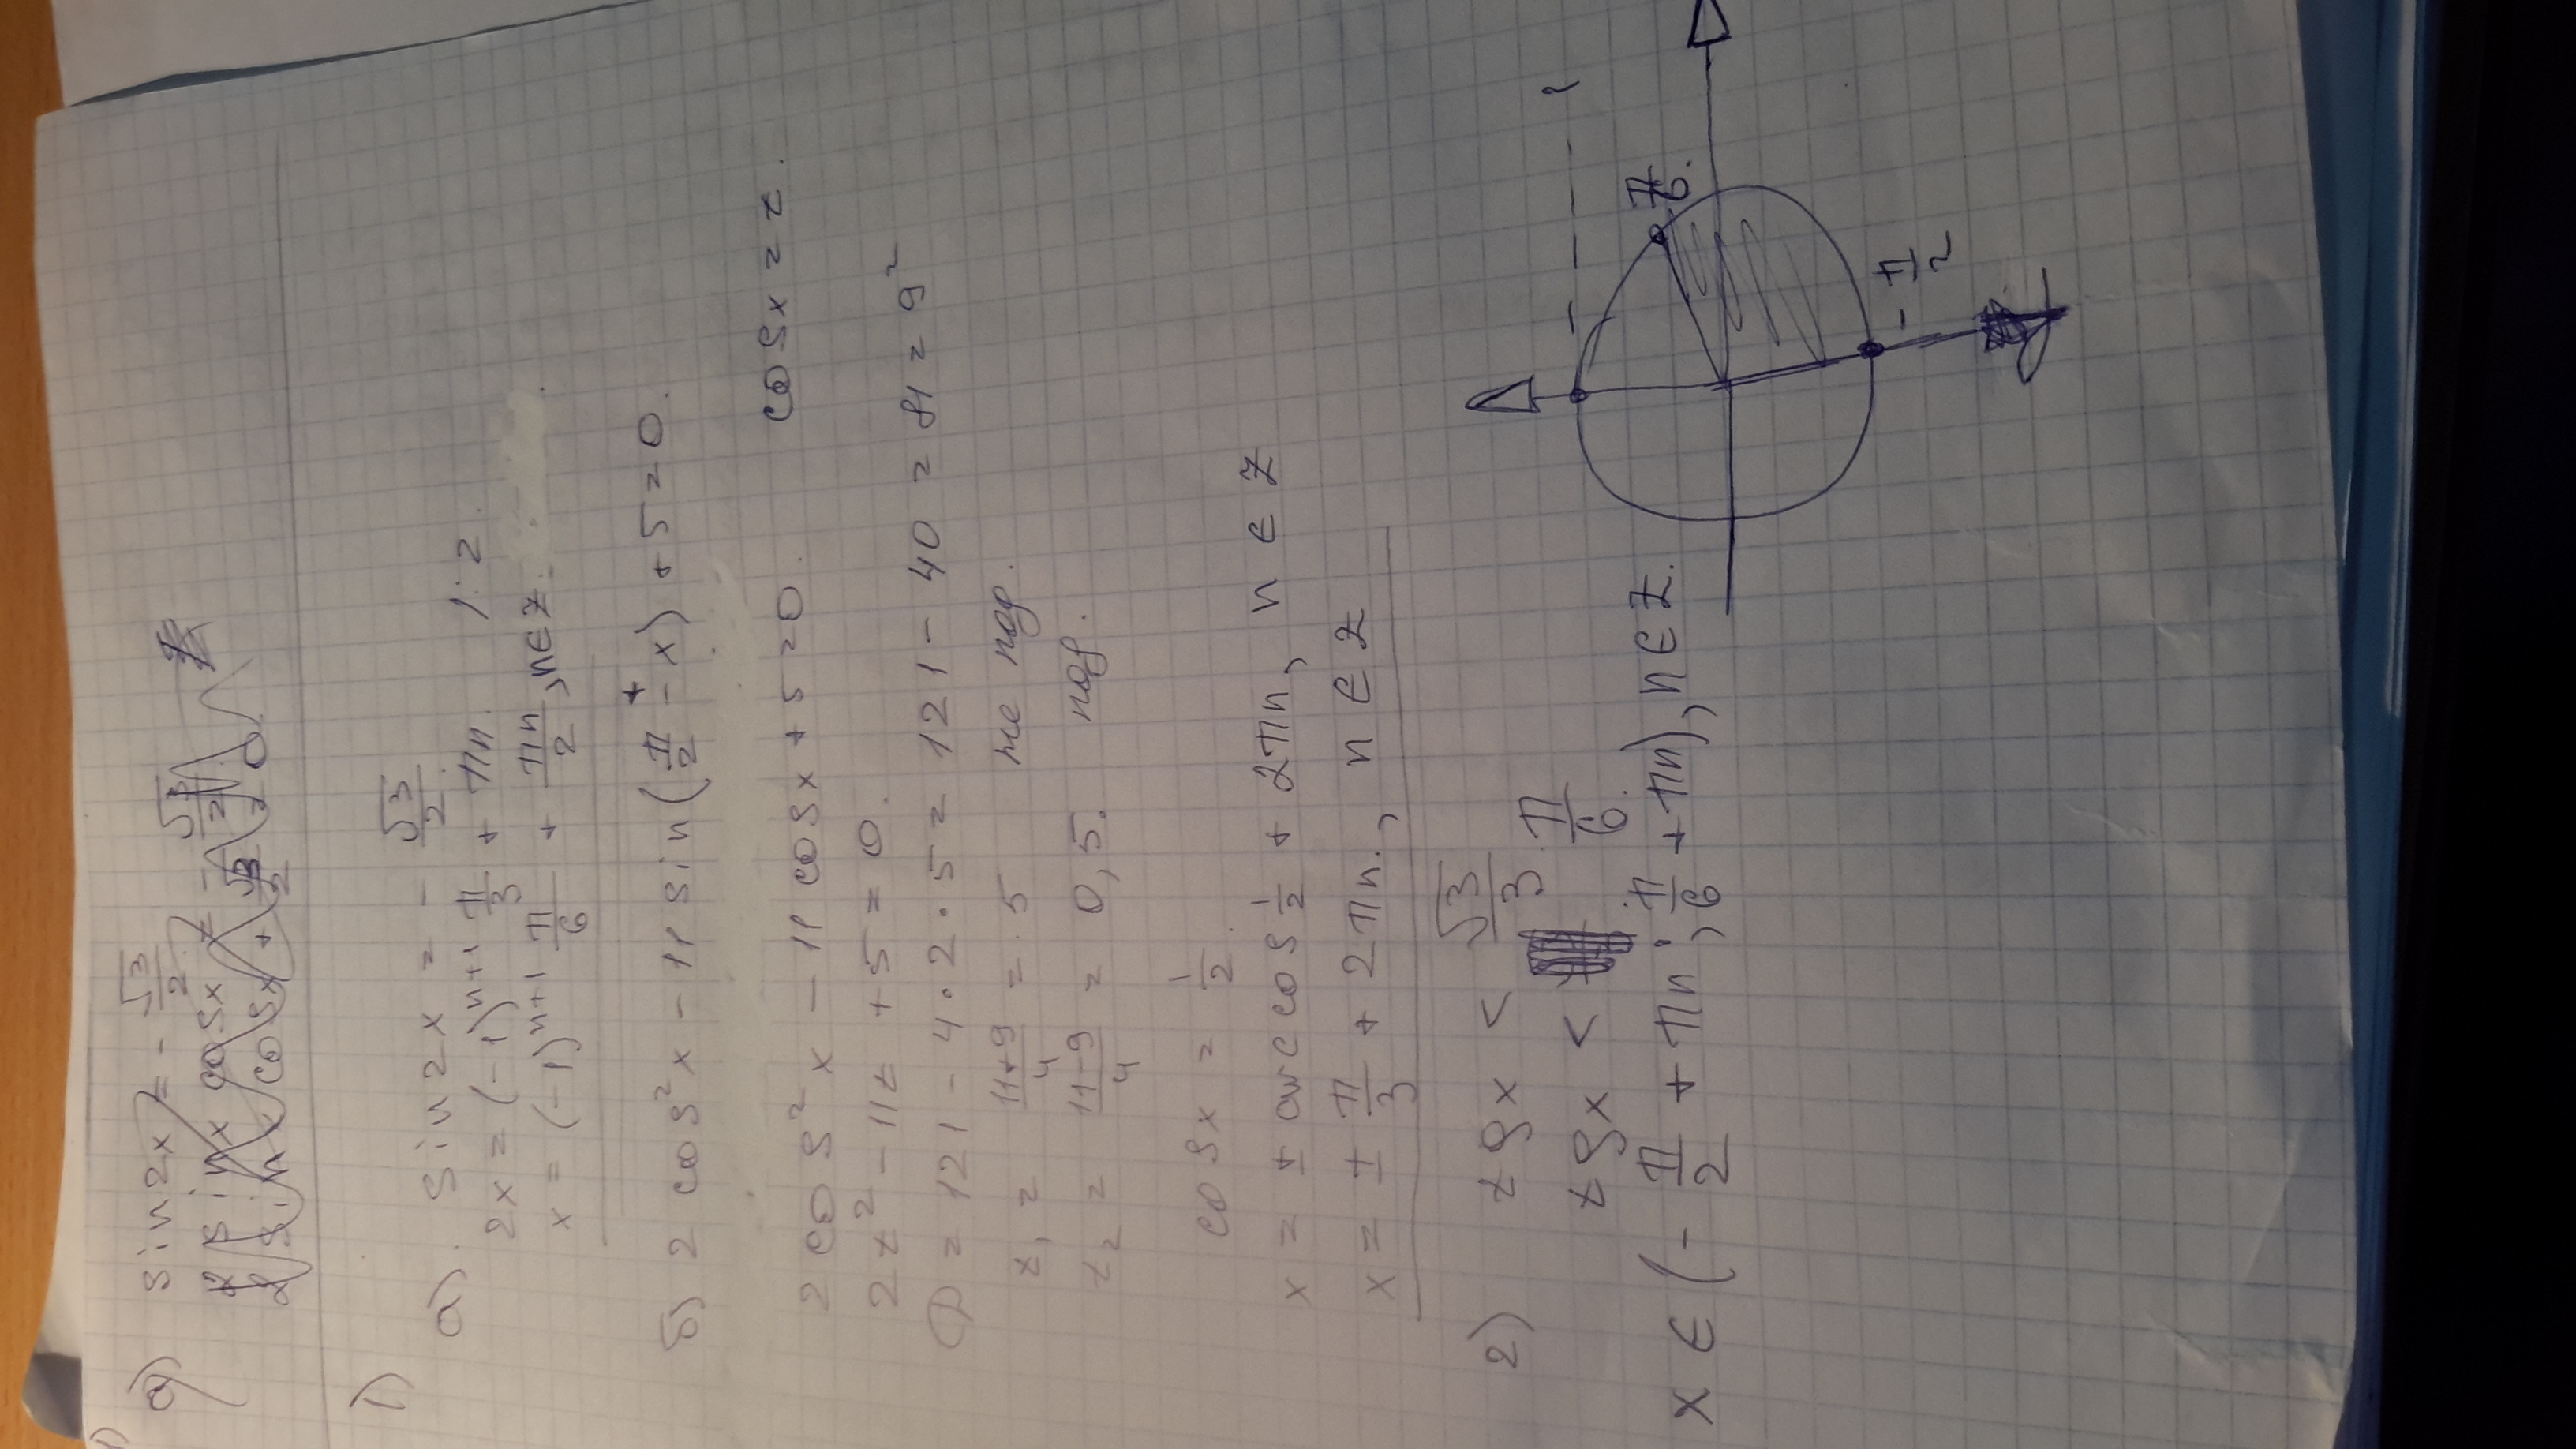 1)
а) sin2x = - √3/2
1)
а). sin2x = - √3/2.
2x = (-1)^{n+1} π/3 + πn. /:2.
x = (-1)^{n+1} π/6 + πn/2, n∈Z.
б) 2cos²x - 11sin(π/2 - x) + 5 = 0.
+
2cos²x - 11cosx + 5 = 0. cosx = t.
2t² - 11t + 5 = 0.
D = 121 - 4·2·5 = 121 - 40 = 81 = 9²
t₁ = 11+9/4 = 5 не под.
t₂ = 11-9/4 = 0,5. под.
cosx = 1/2.
x = ± arccos 1/2 + 2πn, n∈Z
x = ± π/3 + 2πn., n∈Z
2) tgx < √3/3.
tgx < π/6.
x ∈ (-π/2 + πn; π/6 + πn), n∈Z.
π/6.
-π/2